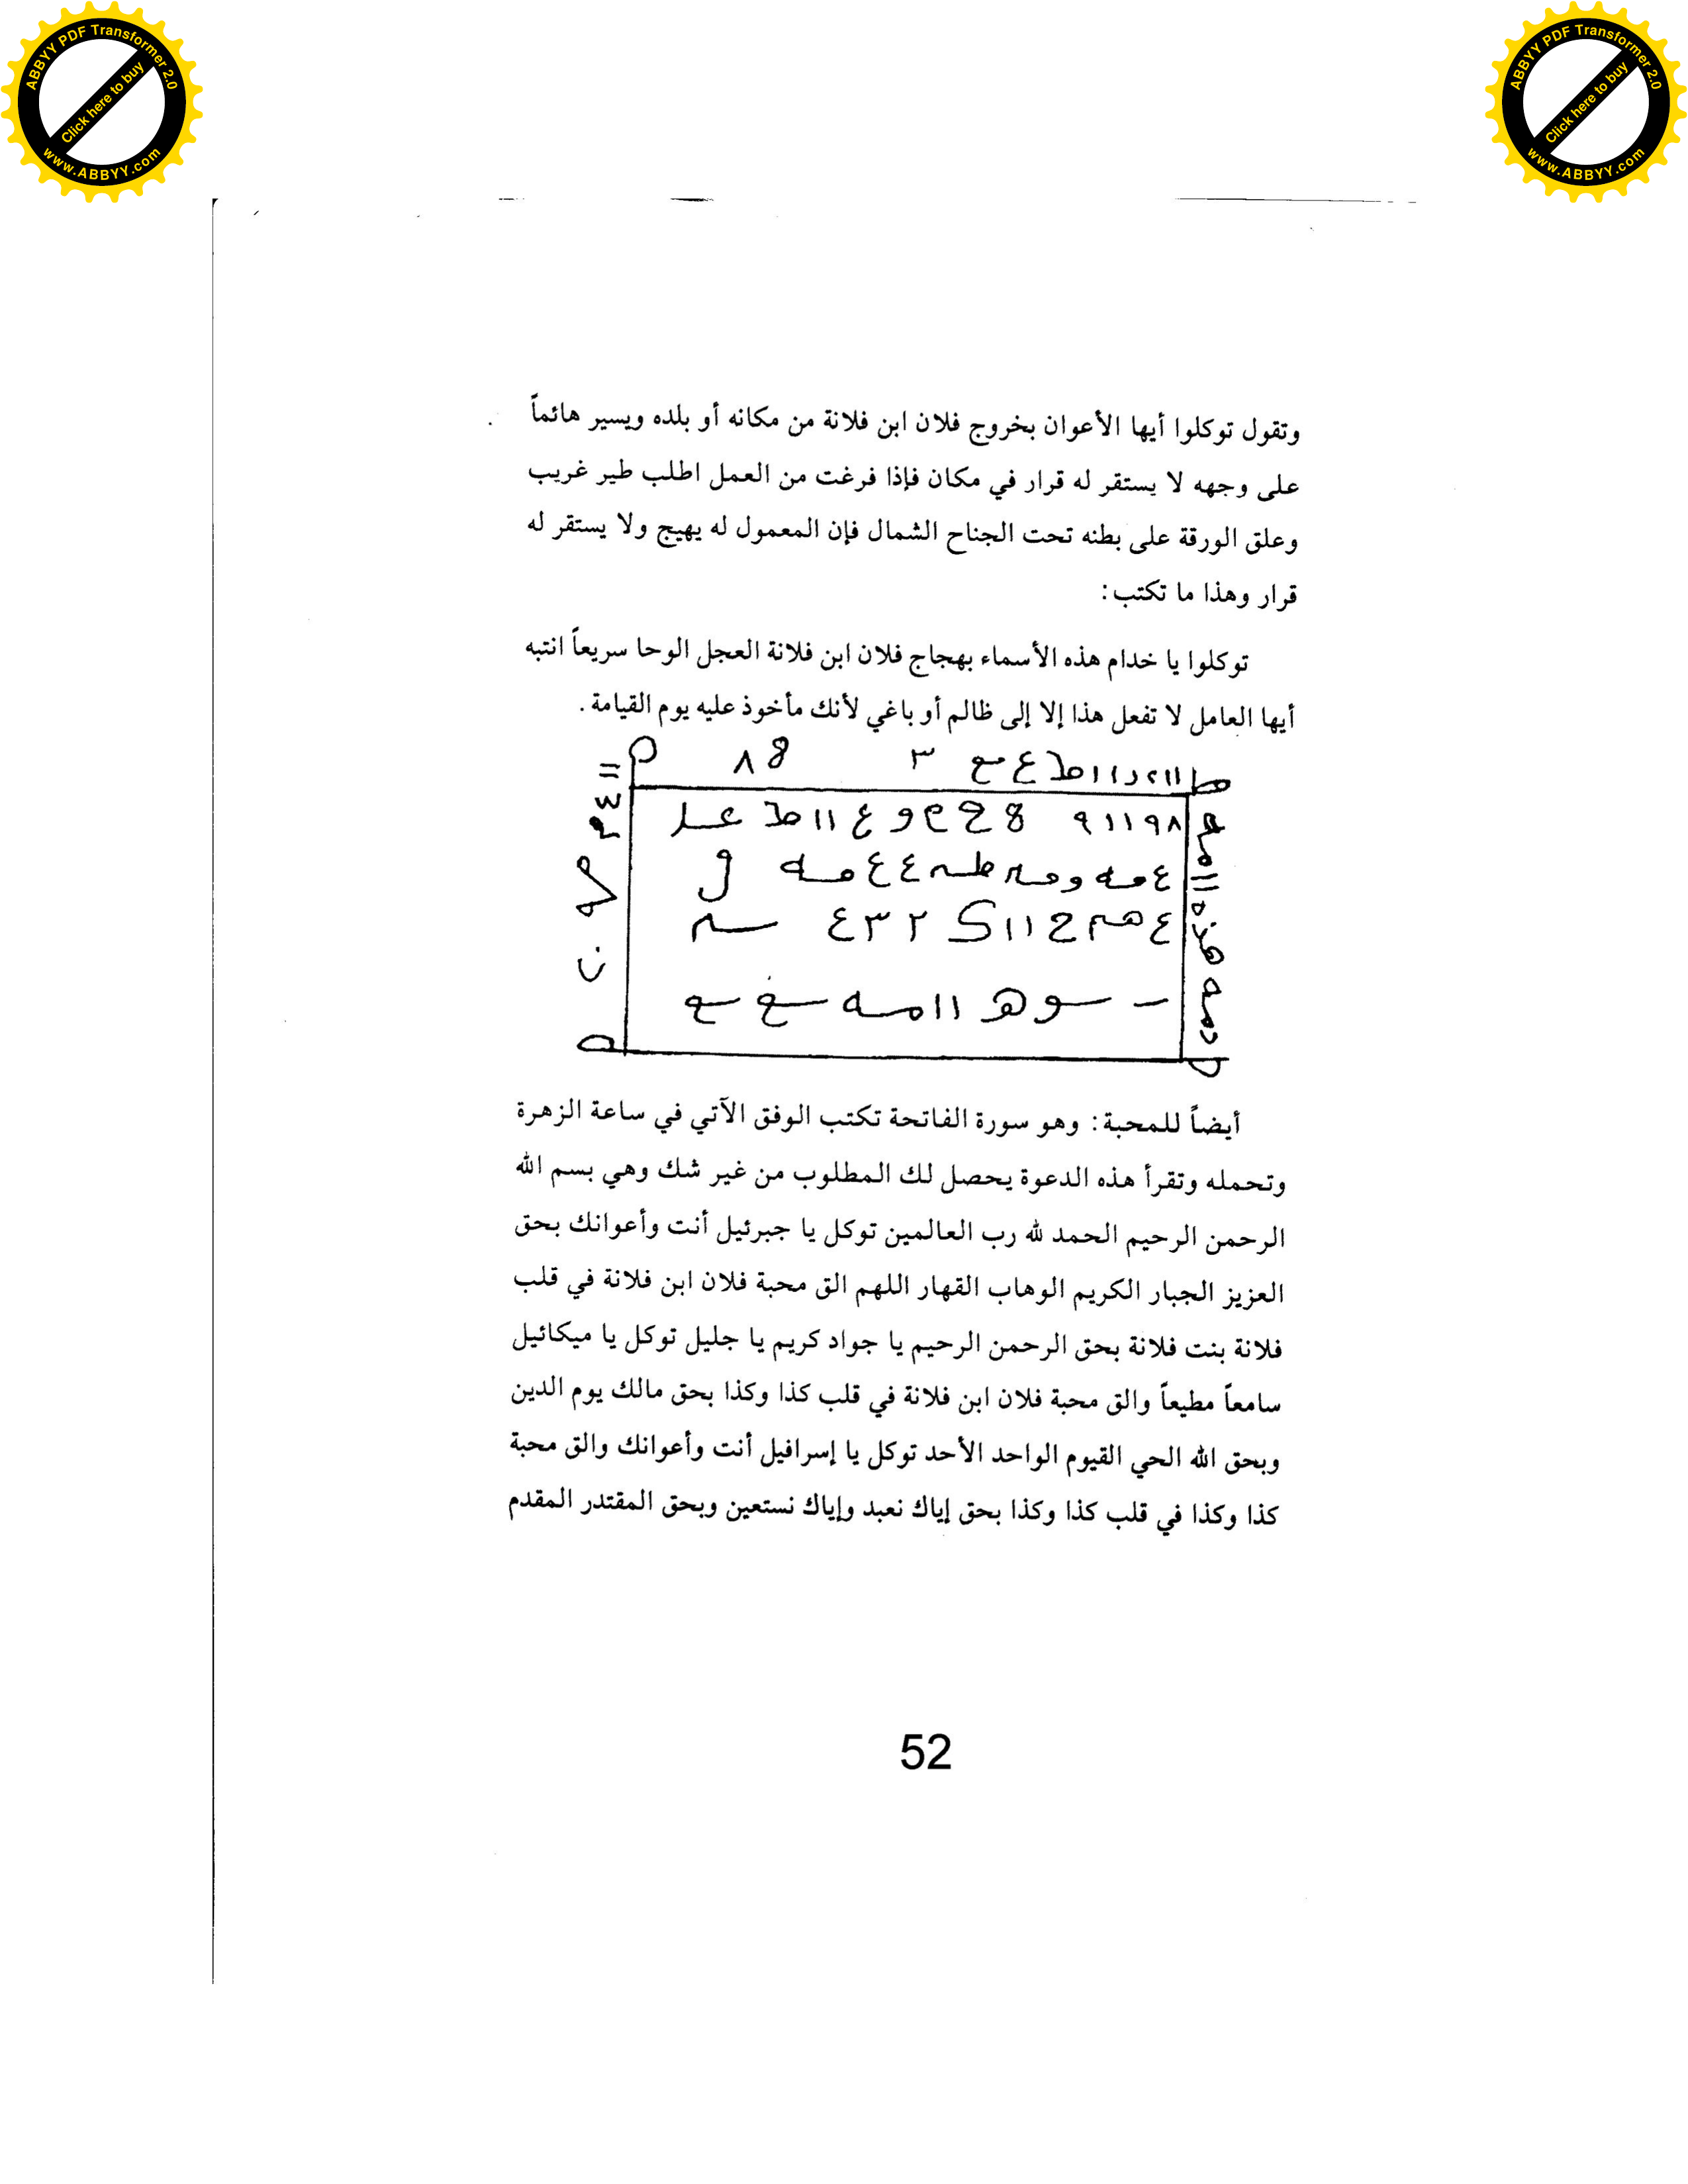 ABBYY PDF Transformer 2.0
Click here to buy
www.ABBYY.com
ABBYY PDF Transformer 2.0
Click here to buy
www.ABBYY.com
وتقول توكلوا أيها الأعوان بخروج فلان ابن فلانة من مكانه أو بلده ويسير هائماً
على وجهه لا يستقر له قرار في مكان فإذا فرغت من العمل اطلب طير غريب
وعلق الورقة على بطنه تحت الجناح الشمال فإن المعمول له يهيج ولا يستقر له
قرار وهذا ما تكتب:
توكلوا يا خدام هذه الأسماء بهجاج فلان ابن فلانة العجل الوحا سريعاً انتبه
أيها العامل لا تفعل هذا إلا إلى ظالم أو باغي لأنك مأخوذ عليه يوم القيامة.
أيضاً للمحبة: وهو سورة الفاتحة تكتب الوفق الآتي في ساعة الزهرة
وتحمله وتقرأ هذه الدعوة يحصل لك المطلوب من غير شك وهي بسم الله
الرحمن الرحيم الحمد لله رب العالمين توكل يا جبرئيل أنت وأعوانك بحق
العزيز الجبار الكريم الوهاب القهار اللهم الق محبة فلان ابن فلانة في قلب
فلانة بنت فلانة بحق الرحمن الرحيم يا جواد كريم يا جليل توكل يا ميكائيل
سامعاً مطيعاً والق محبة فلان ابن فلانة في قلب كذا وكذا بحق مالك يوم الدين
وبحق الله الحي القيوم الواحد الأحد توكل يا إسرافيل أنت وأعوانك والق محبة
كذا وكذا في قلب كذا وكذا بحق إياك نعبد وإياك نستعين وبحق المقتدر المقدم
52